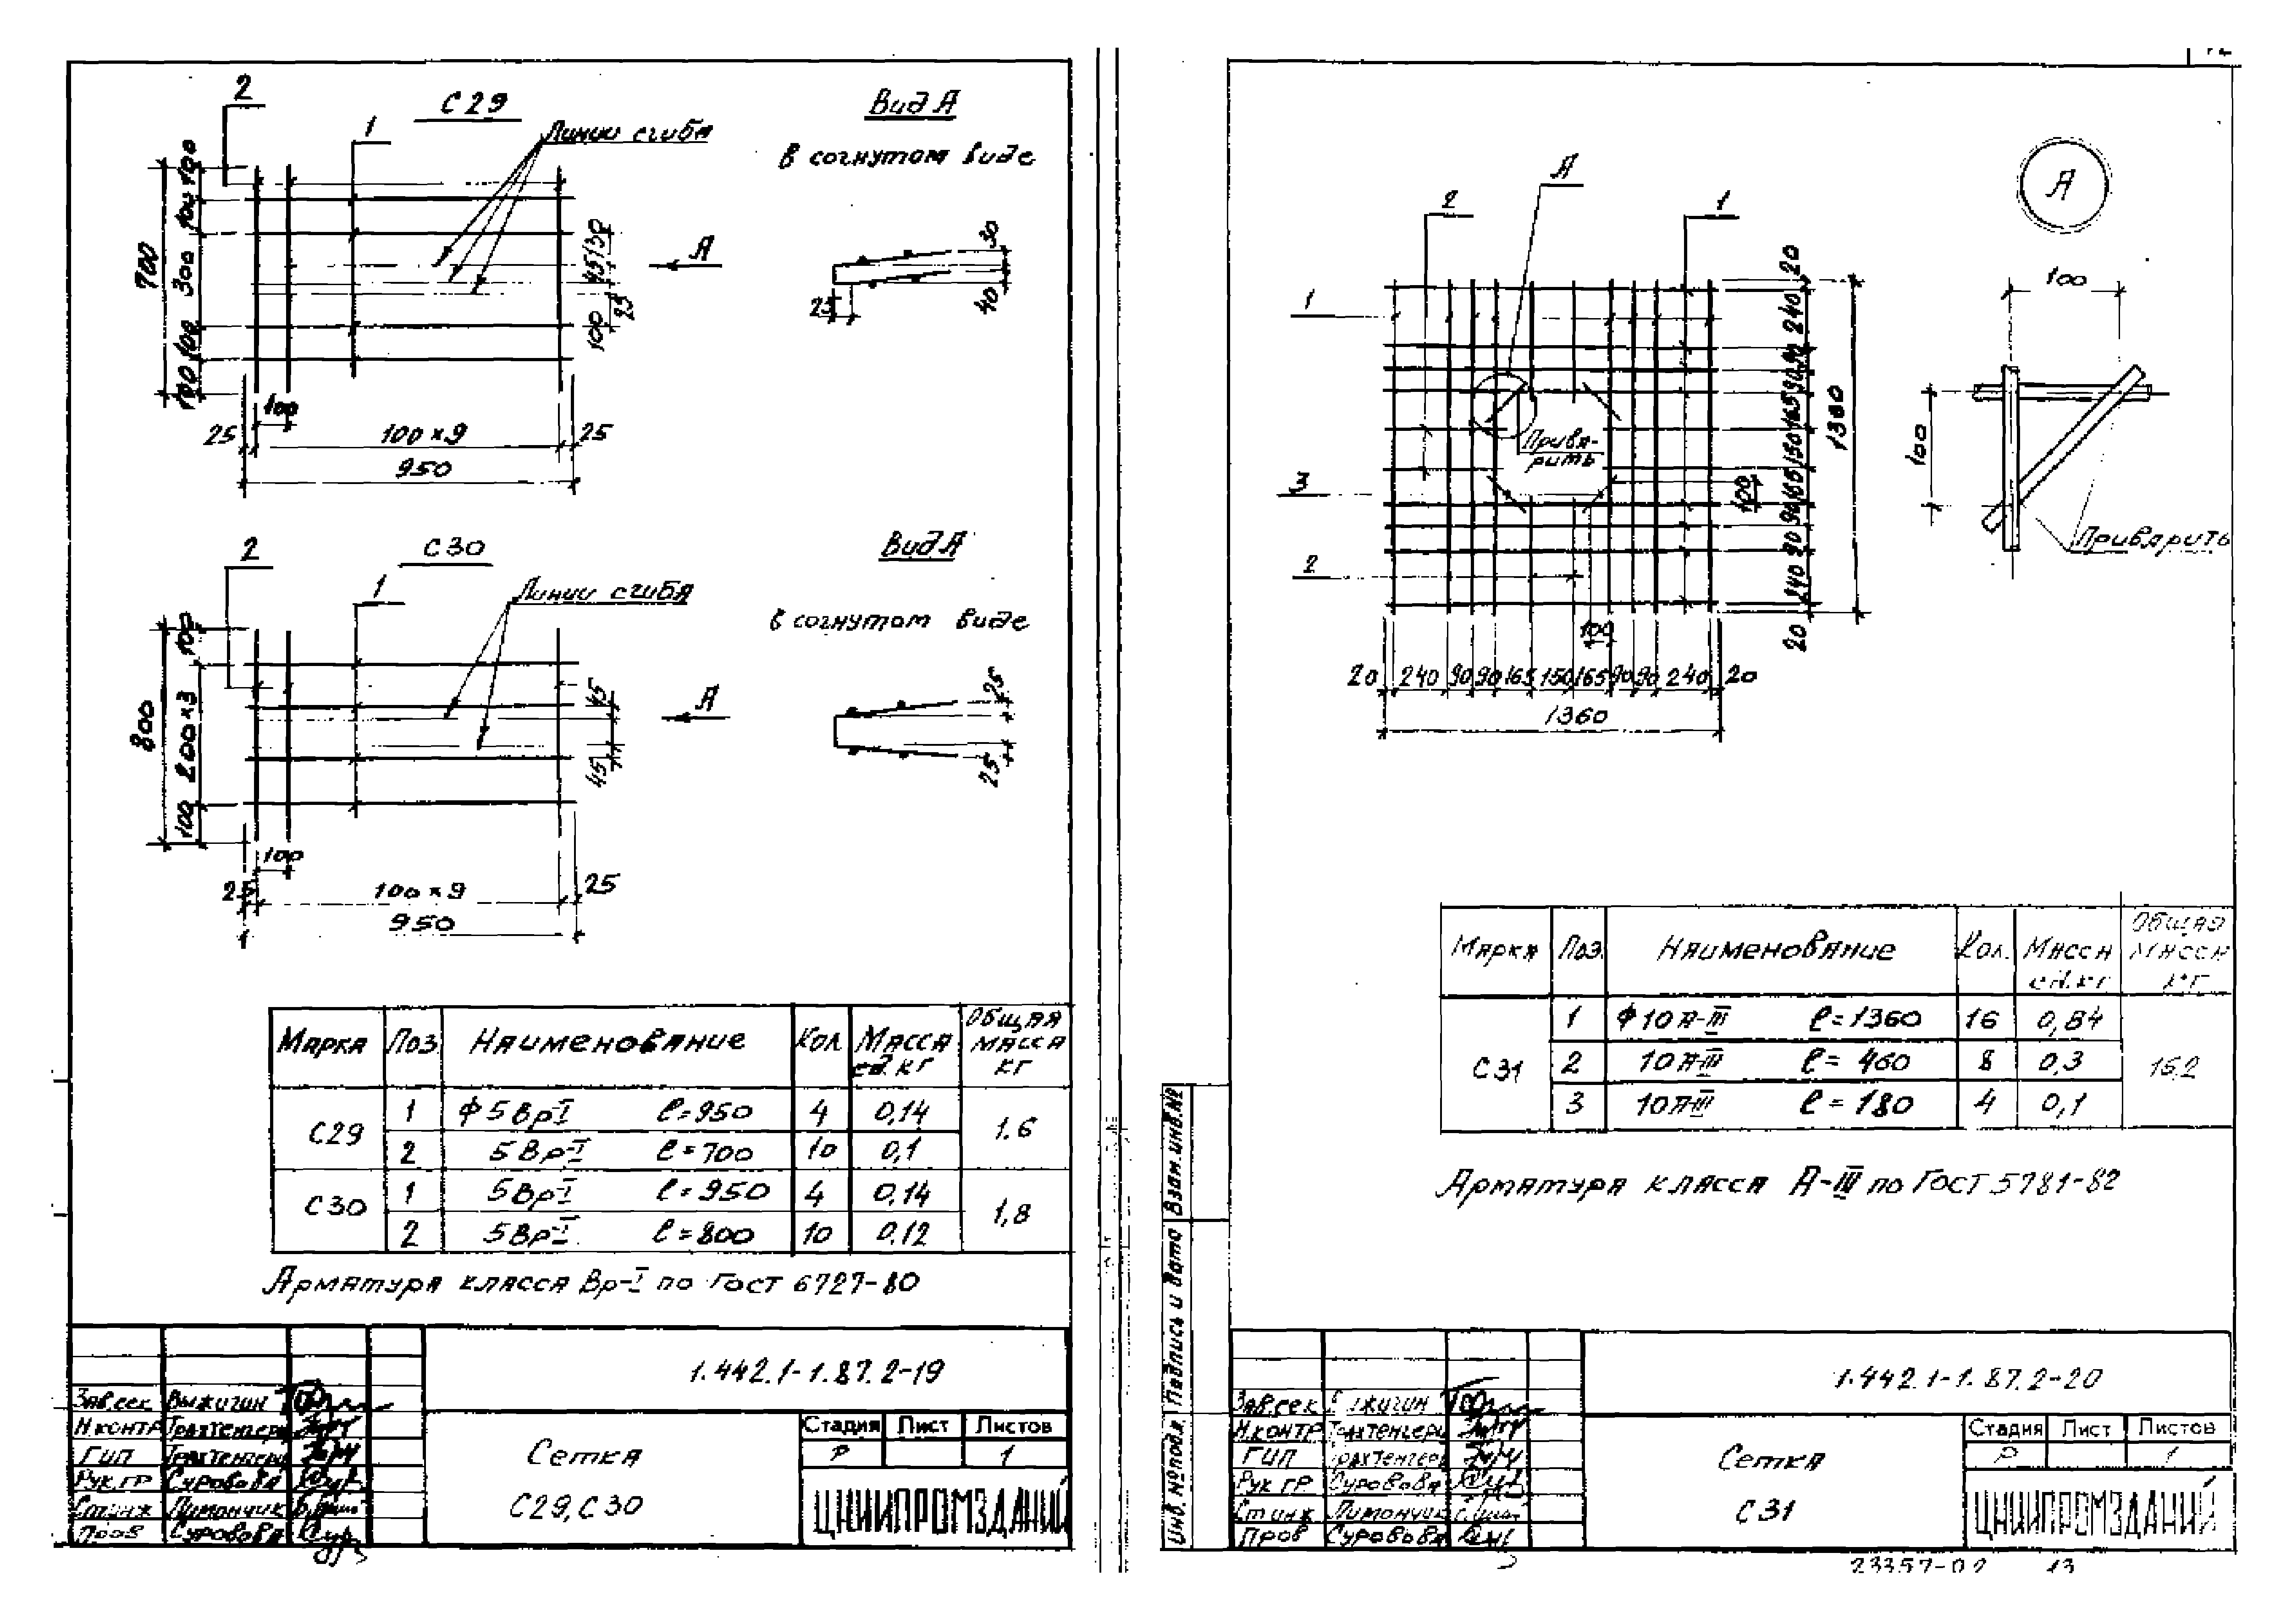 С29
2
1
Линии сгиба
Вид А
в согнутом виде
100
100
300
100
100
700
45
130
25
100
А
30
40
25
100
25
100×9
25
950
С30
2
1
Линии сгиба
Вид А
в согнутом виде
100
200×3
100
800
45
45
А
25
25
100
25
100×9
25
950
Марка Поз Наименование Кол Масса ед. кг Общая масса кг
С29 1 ф 5Вр-I ℓ=950 4 0,14 1.6
2 5Вр-I ℓ=700 10 0,1
С30 1 5Вр-I ℓ=950 4 0,14 1,8
2 5Вр-I ℓ=800 10 0.12
Арматура класса Вр-I по Гост 6727-80
1.442.1-1.87.2-19
Зав.сек Выжигин
Н.контр Трахтенгерц
ГИП Трахтенгерц
Рук.гр Суровова
Ст.инж Лимончик
Пров Суровова
Сетка
С29, С30
Стадия Лист Листов
Р 1
ЦНИИПРОМЗДАНИЙ
А
2
1
1
3
2
А
Привя-
рить
20
240
90
90
165
150
165
90
90
240
20
1360
100
100
20 240 90 90 165 150 165 90 90 240 20
1360
100
100
Приварить
Марка Поз. Наименование Кол. Масса ед.кг Общая масса кг
С31 1 ф 10А-III ℓ=1360 16 0,84 15,2
2 10А-III ℓ= 460 8 0,3
3 10А-III ℓ= 180 4 0,1
Арматура класса А-III по Гост 5781-82
Взам.инв.№
Подпись и дата
Инв. № подл.
1.442.1-1.87.2-20
Зав.сек Выжигин
Н.контр Трахтенгерц
ГИП Трахтенгерц
Рук.гр Суровова
Ст.инж Лимончик
Пров Суровова
Сетка
С31
Стадия Лист Листов
Р 1
ЦНИИПРОМЗДАНИЙ
23357-02 13